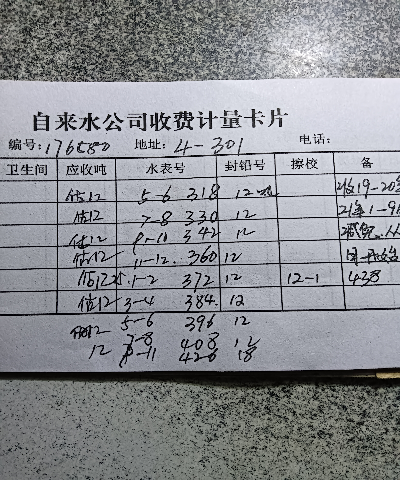 自来水公司收费计量卡片
编号:176080 地址: 4-301 电话:
卫生间 应收吨 水表号 封铅号 擦校 备
估12 5-6 318 12 收19-20
估12 7-8 330 12 21年1-9
估12 9-10 342 12
估12 11-12 360 12
估12 1-2 372 12 12-1 438
估12 3-4 384 12
估12 5-6 396 12
12 7-8 408 12
-11 426 18